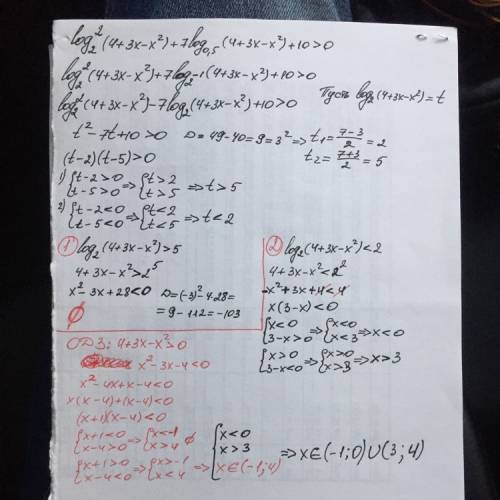 log₂²(4+3x-x²)+7log₀,₅(4+3x-x²)+10>0
log₂²(4+3x-x²)+7log₂-1(4+3x-x²)+10>0
log₂²(4+3x-x²)-7log₂(4+3x-x²)+10>0 Пусть log₂(4+3x-x²)=t
t²-7t+10>0 D=49-40=9=3² => t₁=(7-3)/2=2
(t-2)(t-5)>0 t₂=(7+3)/2=5
1) {t-2>0 t-5>0 => {t>2 t>5 => t>5
2) {t-2<0 t-5<0 => {t<2 t<5 => t<2
① log₂(4+3x-x²)>5
4+3x-x²>2⁵
x²-3x+28<0 D=(-3)²-4·28=
=9-112=-103
∅
② log₂(4+3x-x²)<2
4+3x-x²<2²
-x²+3x+4<4
x(3-x)<0
{x<0 3-x>0 => {x<0 x<3 => x<0
{x>0 3-x<0 => {x>0 x>3 => x>3
ОДЗ: 4+3x-x²>0
x²-3x-4<0
x²-4x+x-4<0
x(x-4)+(x-4)<0
(x+1)(x-4)<0
{x+1<0 x-4>0 => {x<-1 x>4 ∅
{x+1>0 x-4<0 => {x>-1 x<4 => x∈(-1;4)
{x<0 x>3 => x∈(-1;0)∪(3;4)